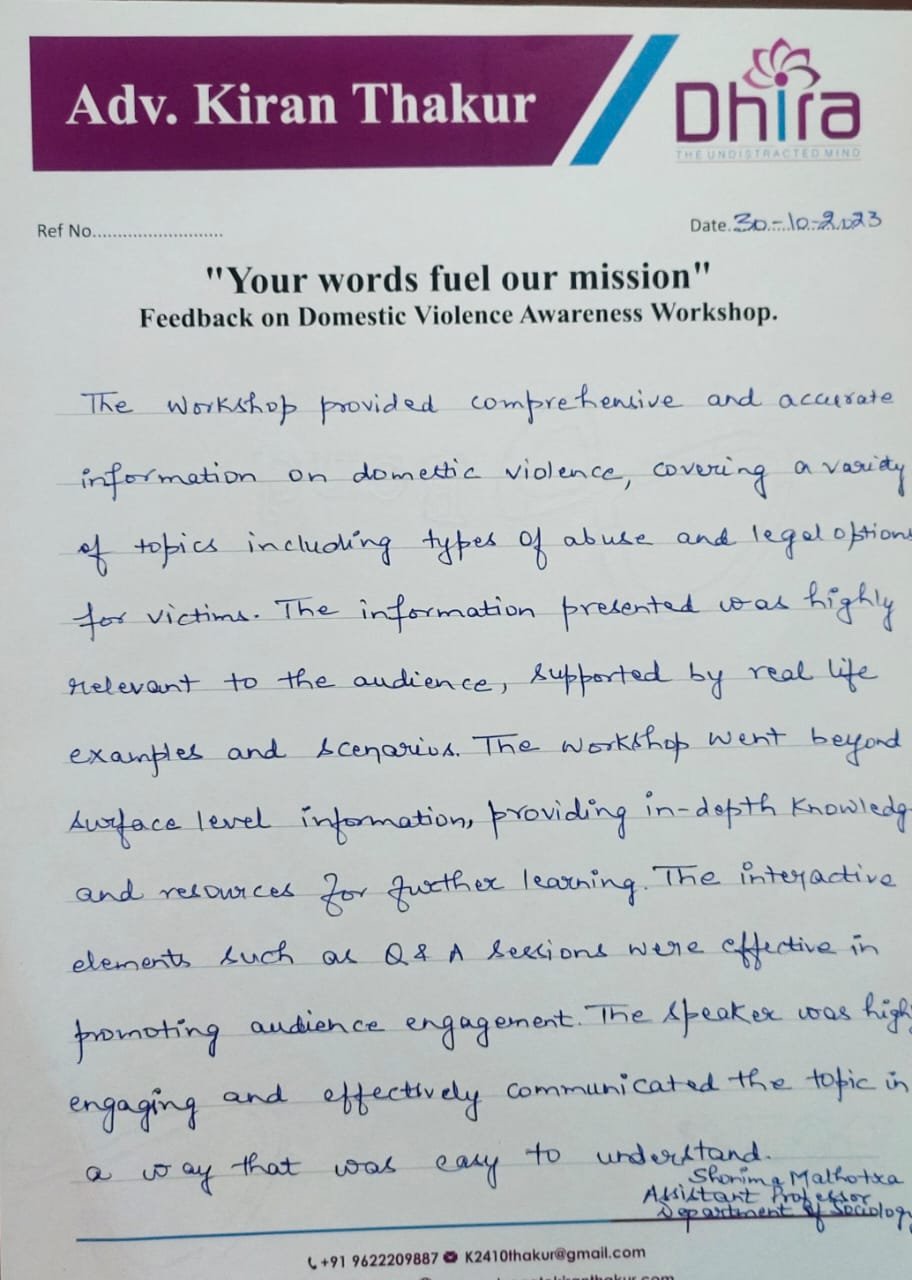 Adv. Kiran Thakur
Dhira
THE UNDISTRACTED MIND
Ref No..........................
Date. 30-10-2023
"Your words fuel our mission"
Feedback on Domestic Violence Awareness Workshop.
The workshop provided comprehensive and accurate
information on domestic violence, covering a variety
of topics including types of abuse and legal options
for victims. The information presented was highly
relevant to the audience, supported by real life
examples and scenarios. The workshop went beyond
surface level information, providing in-depth Knowledg
and resources for further learning. The interactive
elements such as Q & A sessions were effective in
promoting audience engagement. The speaker was high
engaging and effectively communicated the topic in
a way that was easy to understand.
Shonima Malhotra
Assistant Professor
Department of Sociology
+91 9622209887 K2410thakur@gmail.com